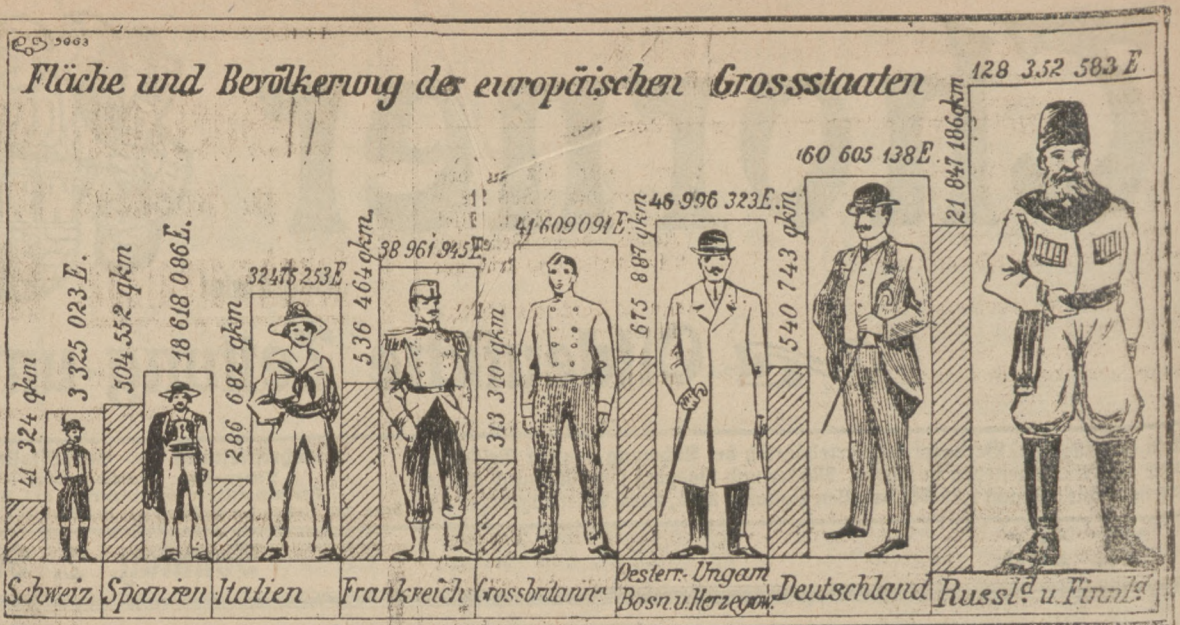 5003
Fläche und Bevölkerung der europäischen Grossstaaten
41 324 qkm
3 325 023 E.
504 552 qkm
18 618 086 E.
286 682 qkm
32475 253 E
536 464 qkm.
38 961 945 E.
313 310 qkm
41 609 091 E.
675 887 qkm
46 996 323 E.
540 743 qkm
60 605 138 E.
21 847 186 qkm
128 352 583 E.
Schweiz
Spanien
Italien
Frankreich
Grossbritann.
Oesterr.-Ungarn
Bosn. u. Herzegow.
Deutschland
Russld. u. Finnld.